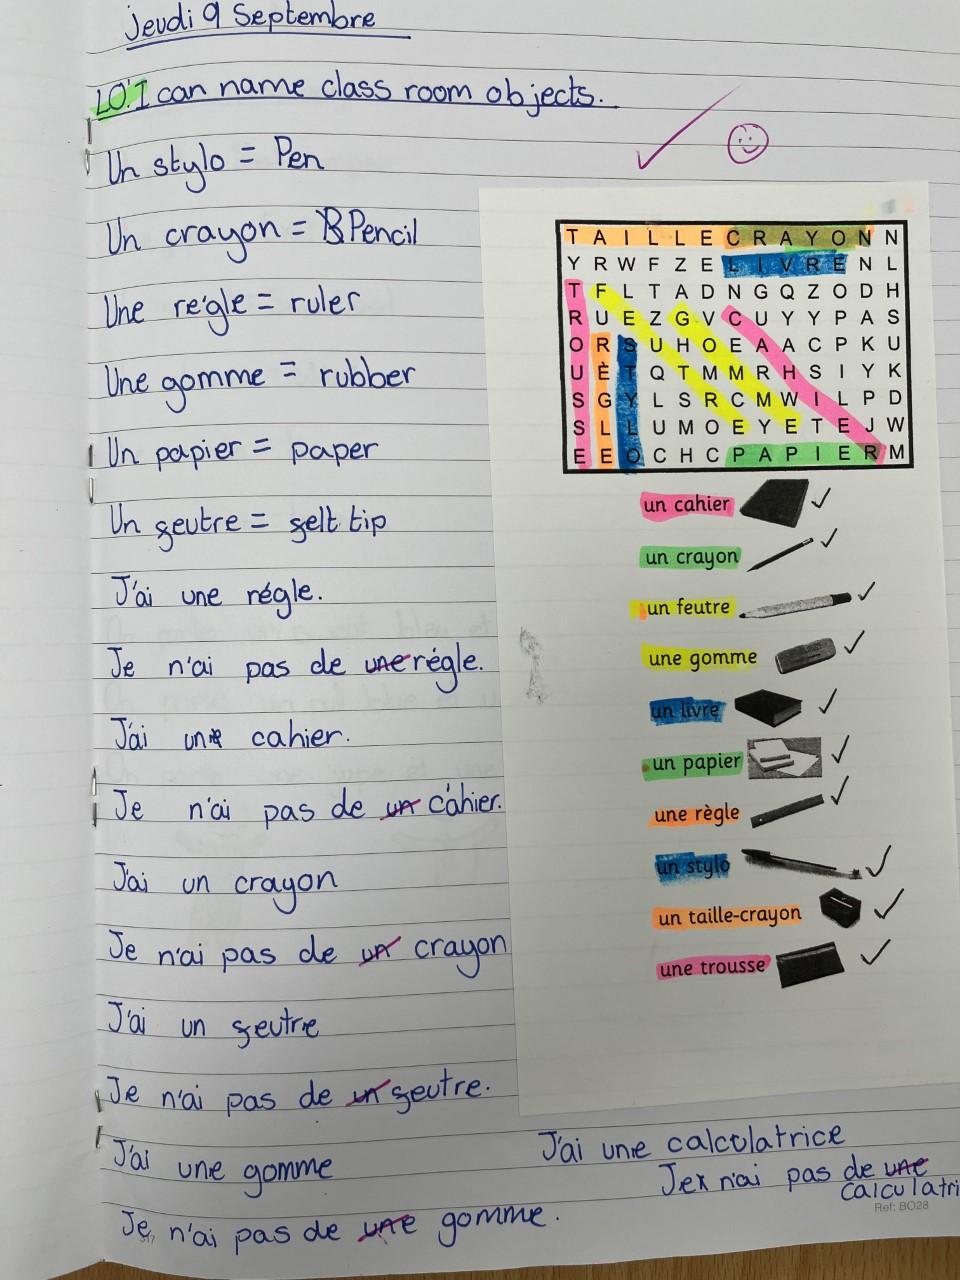 Jeudi 9 Septembre
LO: I can name class room objects.
Un stylo = Pen
Un crayon = Pencil
Une régle = ruler
Une gomme = rubber
Un papier = paper
Un feutre = felt tip
J'ai une régle.
Je n'ai pas de une régle.
J'ai un cahier.
Je n'ai pas de un cahier.
J'ai un crayon
Je n'ai pas de un crayon
J'ai un feutre
Je n'ai pas de un feutre.
J'ai une gomme
Je n'ai pas de une gomme.
J'ai une calculatrice
Je n'ai pas de une
calculatri
Ref: BO28
T A I L L E C R A Y O N N
Y R W F Z E L I V R E N L
T F L T A D N G Q Z O D H
R U E Z G V C U Y Y P A S
O R S U H O E A A C P K U
U È T Q T M M R H S I Y K
S G Y L S R C M W I L P D
S L L U M O E Y E T E J W
E E O C H C P A P I E R M
un cahier
un crayon
un feutre
une gomme
un livre
un papier
une règle
un stylo
un taille-crayon
une trousse